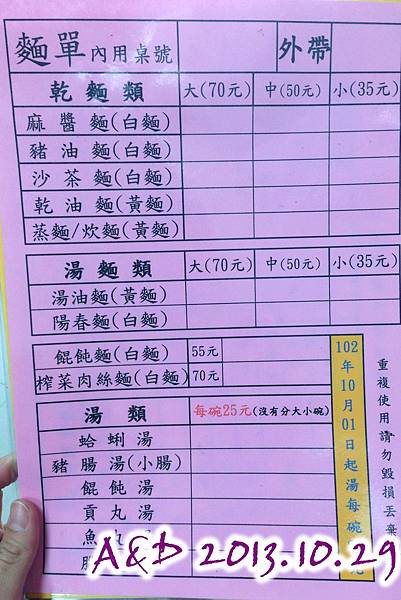 麵單 內用桌號 外帶
乾麵類 大(70元) 中(50元) 小(35元)
麻醬麵(白麵)
豬油麵(白麵)
沙茶麵(白麵)
乾油麵(黃麵)
蒸麵/炊麵(黃麵)
湯麵類 大(70元) 中(50元) 小(35元)
湯油麵(黃麵)
陽春麵(白麵)
餛飩麵(白麵) 55元
榨菜肉絲麵(白麵) 70元
湯類 每碗25元(沒有分大小碗)
蛤蜊湯
豬腸湯(小腸)
餛飩湯
貢丸湯
魚丸
102年10月01日起湯每碗
重複使用請勿毀損丟棄
A&D 2013.10.29